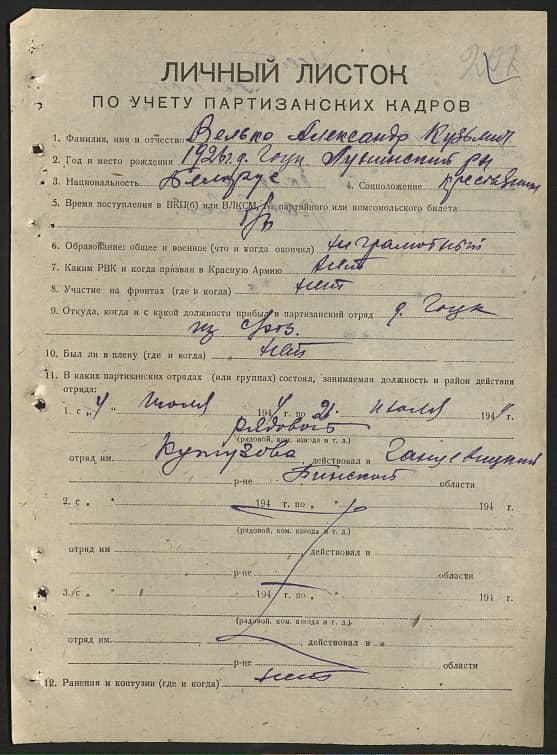 ЛИЧНЫЙ ЛИСТОК
ПО УЧЕТУ ПАРТИЗАНСКИХ КАДРОВ
1. Фамилия, имя и отчество Велько Александр Кузьмич
2. Год и место рождения 1926 г. д. Гоцк
3. Национальность Белорус 4. Соцположение крестьянин
5. Время поступления в ВКП(б) или ВЛКСМ, № партийного или комсомольского билета
б/п
6. Образование: общее и военное (что и когда окончил)
7. Каким РВК и когда призван в Красную Армию нет
8. Участие на фронтах (где и когда) нет
9. Откуда, когда и с какой должности прибыл в партизанский отряд д. Гоцк
из
10. Был ли в плену (где и когда) нет
11. В каких партизанских отрядах (или группах) состоял, занимаемая должность и район действия
отряда:
1. с „4 " июля 1944 г. по 21 июля 194 г.
рядовой
(рядовой, ком. взвода и т. д.)
отряд им. Кутузова действовал в Ганцевицкий
р-не Пинской области
2. с „ " 194 г. по „ " 194 г.
(рядовой, ком. взвода и т. д.)
отряд им действовал в
р-не области
3. с „ " 194 г. по „ " 194 г.
(рядовой, ком. взвода и т. д.)
отряд им. действовал в
р-не области
12. Ранения и контузии (где и когда) нет